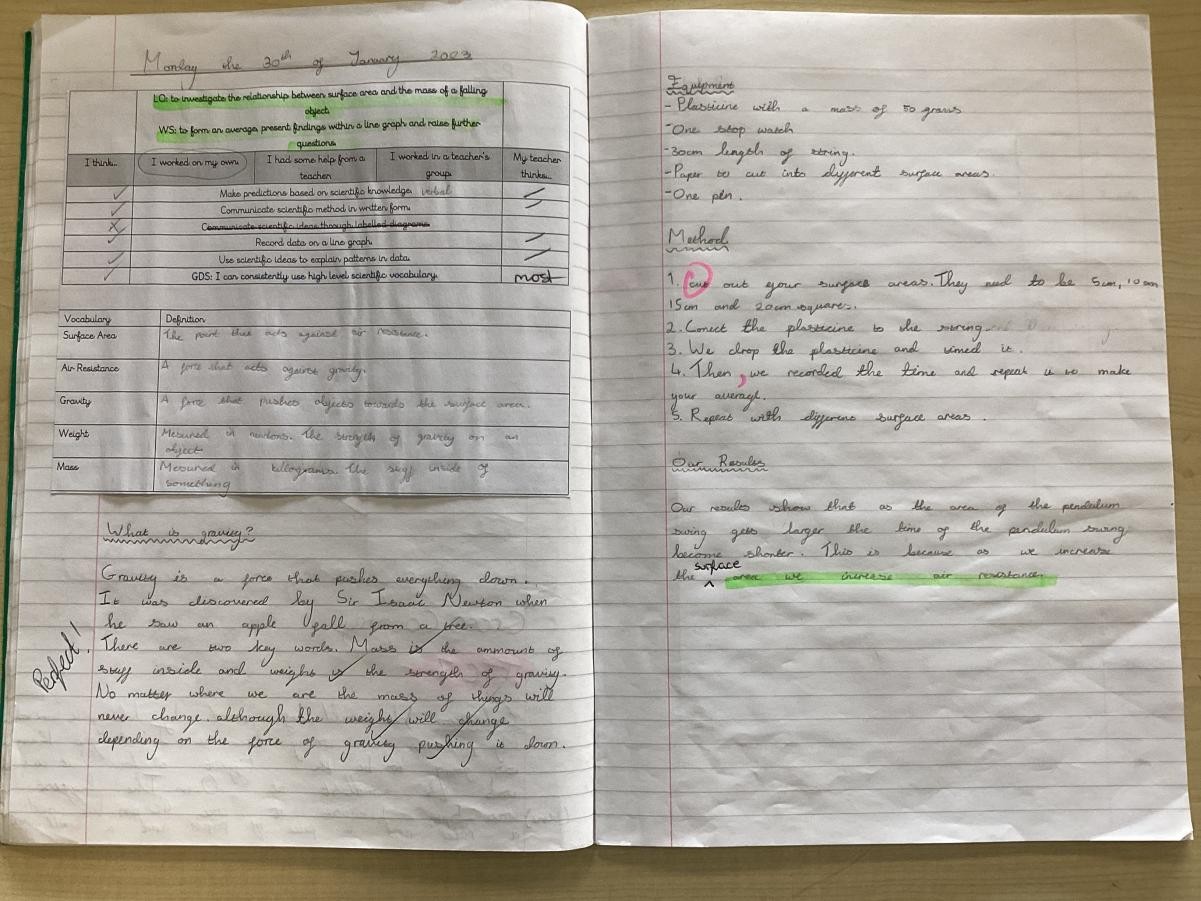 Monday the 30th of January 2023
LO: to investigate the relationship between surface area and the mass of a falling
object.
WS: to form an average, present findings within a line graph and raise further
questions
I think... I worked on my own. I had some help from a teacher I worked in a teacher's group. My teacher thinks...
Make predictions based on scientific knowledge. verbal
Communicate scientific method in written form.
Communicate scientific ideas through labelled diagrams.
Record data on a line graph.
Use scientific ideas to explain patterns in data.
GDS: I can consistently use high level scientific vocabulary. most
Vocabulary Definition
Surface Area The point that acts against air resistance.
Air Resistance A force that acts against gravity.
Gravity A force that pushes objects towards the surface area.
Weight Mesured in newtons. The strength of gravity on an
object
Mass Mesured in killograms. The stuff inside of
something
What is gravity?
Gravity is a force that pushes everything down.
It was discovered by Sir Isaac Newton when
he saw an apple fall from a tree.
There are two key words. Mass is the ammount of
stuff inside and weight is the strength of gravity.
No matter where we are the mass of things will
never change. although the weight will change
depending on the force of gravity pushing it down.
Perfect!
Equipment
- Plasticine with a mass of 50 grams
- One stop watch
- 30cm length of string.
- Paper to cut into different surface areas.
- One pen.
Method
1. cut out your surface areas. They need to be 5cm, 10cm
15cm and 20cm square.
2. Conect the plasticine to the string.
3. We drop the plasticine and timed it.
4. Then, we recorded the time and repeat it to make
your average.
5. Repeat with different surface areas.
Our Results
Our results show that as the area of the pendulum
swing gets larger the time of the pendulum swing
become shorter. This is because as we increase
the surface area we increase air resistance.